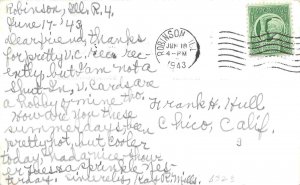 Robinson, Ills. R. 4,
June 17-'43
Dear friend, thanks
for pretty V.C. rec.
ently, but I am not a
Shut-In, V. Cards are
a hobby of mine too.
How are you these
summer days, been
pretty hot, but cooler
today, had a nice
or Sprinkle yes-
terday. Sincerely, R. Mills.
ROBINSON ILL.
JUN 18
4-PM
1943
Frank H. Hull
Chico, Calif.
3